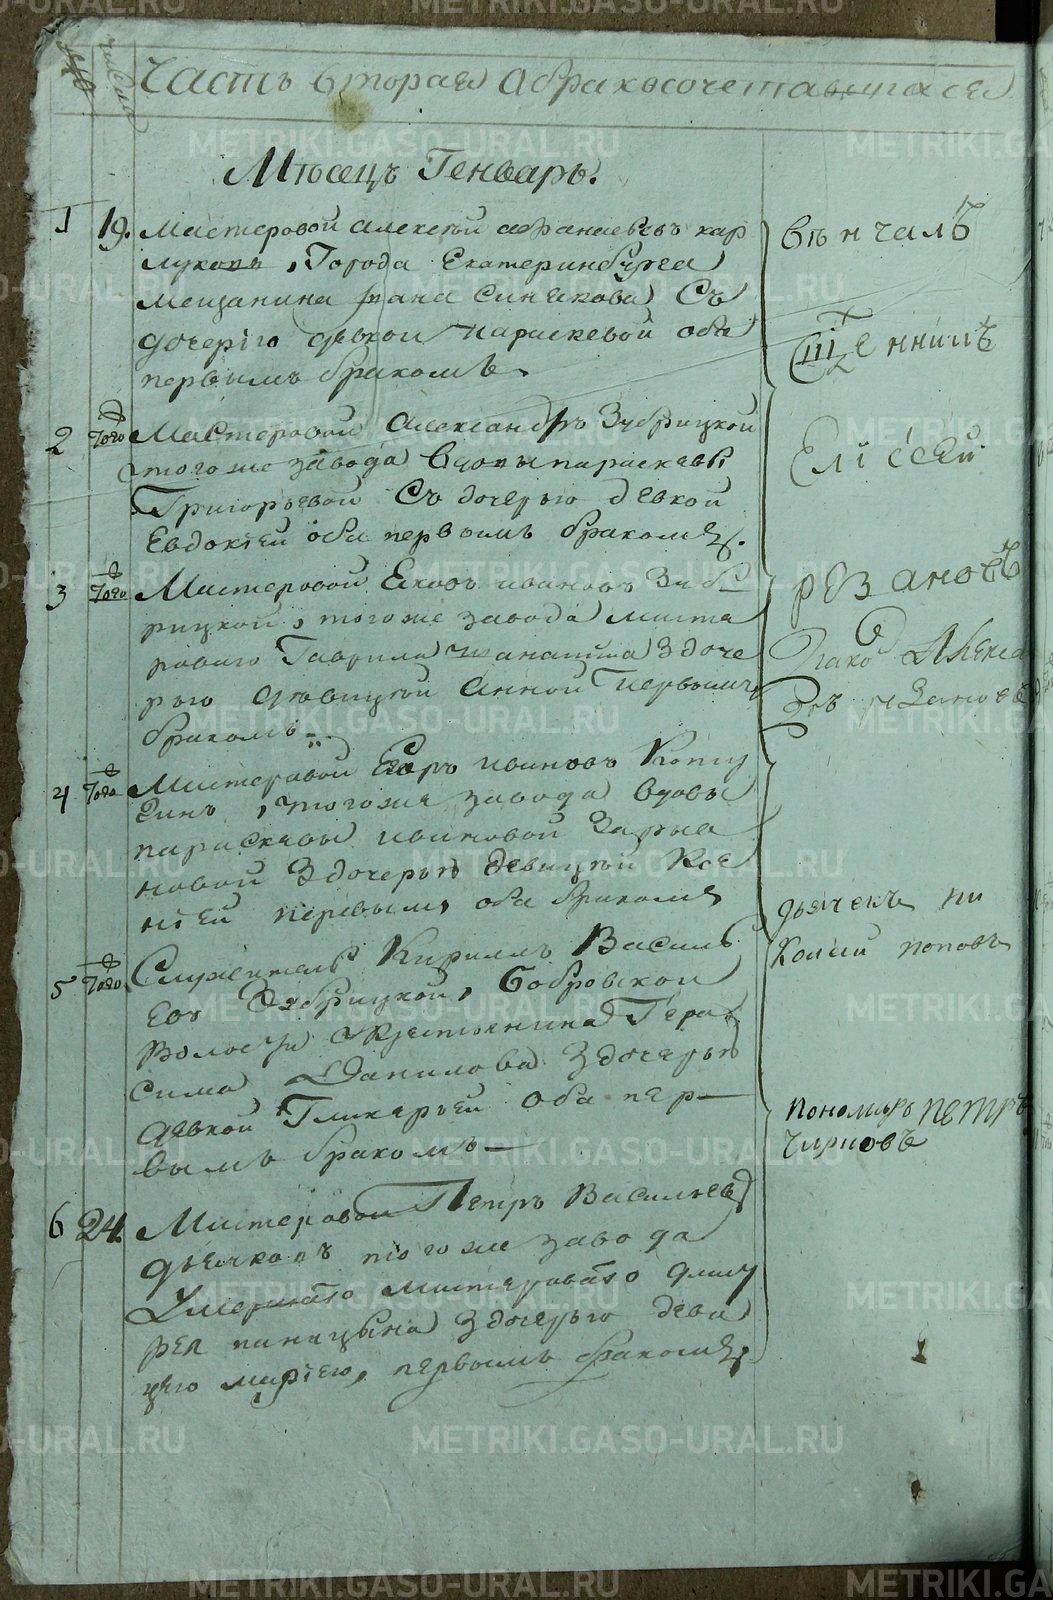 числа
Часть вторая о бракосочетавшихся
Мѣсяцъ Генварь.
1 19. Мастеровой алексѣй афанасьевъ кар
луковъ, Города Екатеринбурга
мещанина ивана Синякова Съ
дочерїю дѣвкои параскевой оба
первымъ бракомъ.
2 Того Мастеровой Александръ Зубрицкой
тогоже завода Вдовы параскевы
Григорьевой Съ дочерью девкой
Евдокіей оба первымъ бракомъ.
3 Того Мастеровой Ековъ ивановъ Зуб
рицкой, тогоже завода масте
роваго Гаврила Здоче
рью дѣвицей Анной Первымъ
бракомъ.
4 Того Мастеровой Егоръ ивановъ Копы
, тогоже завода вдовы
параскевы ивановой
новой Здочерью девицей Ксе
ніей первымъ оба бракомъ
5 Того Служитель Кирилъ Василь
евъ Зубрицкой, Бобровской
Волости Крестьянина Гера
сима Данилова Здочерью
девкой Гликерьей Оба пер
вымъ бракомъ
6 24. Мастеровой Петръ Васильевъ
дьячковъ тогоже завода
Умершаго мастероваго
Здочерью деви
цею марїею, первымъ бракомъ,
вѣнчалъ
Сщенникъ
Елісей
рѣзановъ
Алекса
дьячекъ ни
колай поповъ
пономарь петръ
METRIKI.GASO-URAL.RU